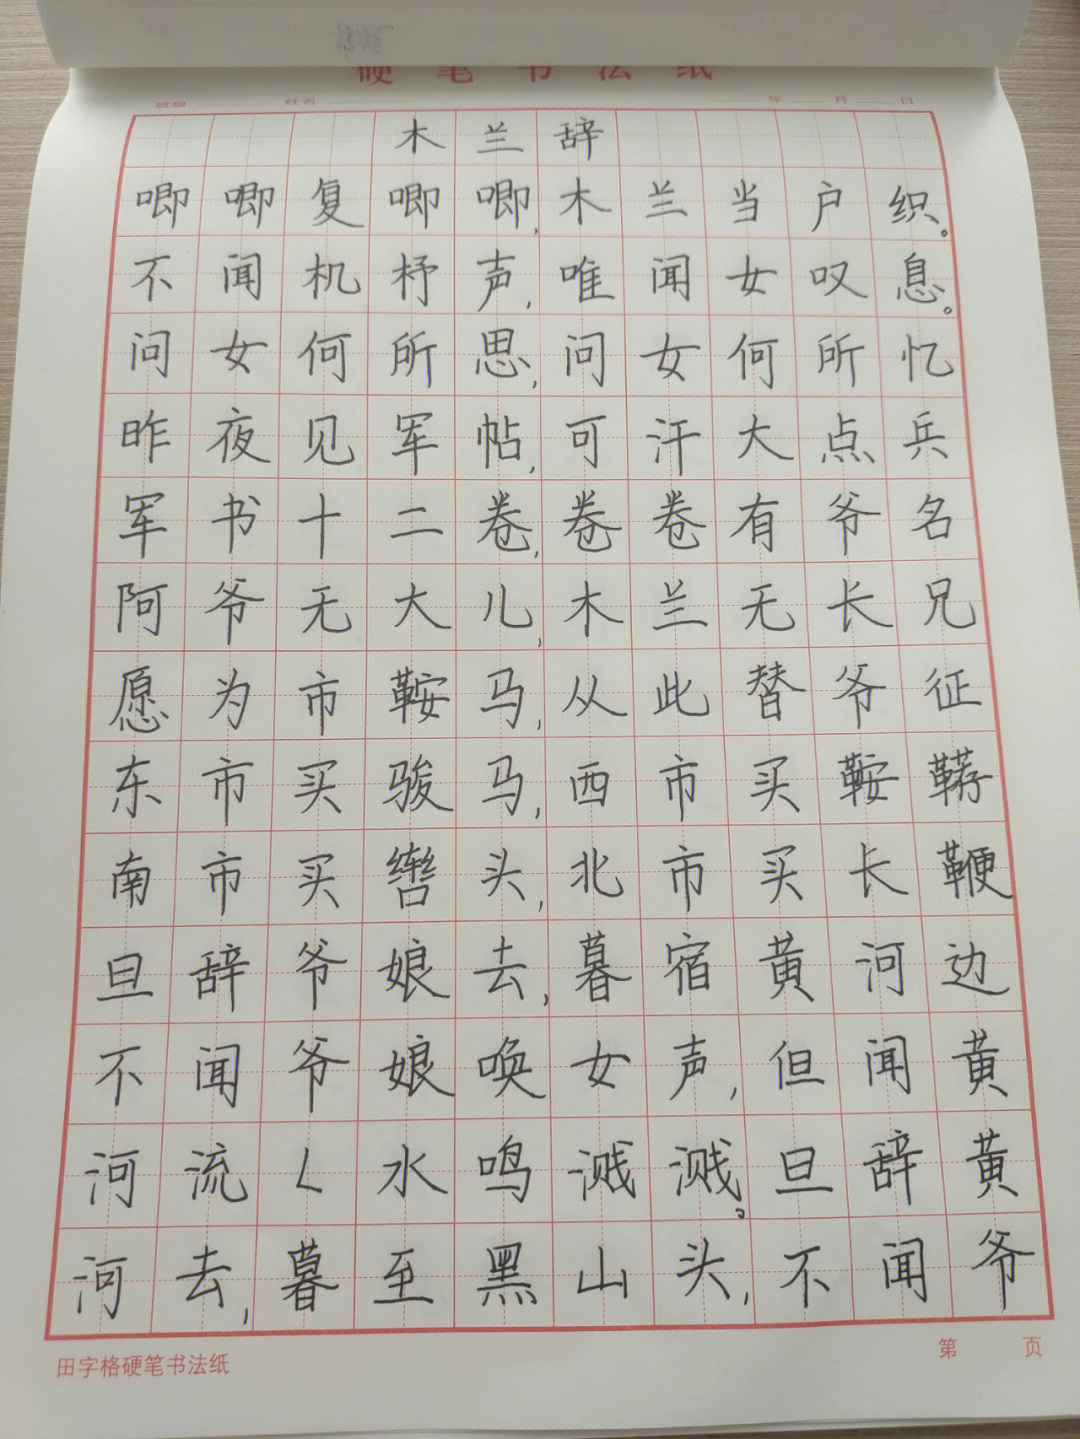 硬笔书法纸
班级 姓名 年 月 日
木兰辞
唧唧复唧唧,木兰当户织。
不闻机杼声,唯闻女叹息。
问女何所思,问女何所忆
昨夜见军帖,可汗大点兵
军书十二卷,卷卷有爷名
阿爷无大儿,木兰无长兄
愿为市鞍马,从此替爷征
东市买骏马,西市买鞍鞯
南市买辔头,北市买长鞭
旦辞爷娘去,暮宿黄河边
不闻爷娘唤女声,但闻黄
河流水鸣溅溅。旦辞黄
河去,暮至黑山头,不闻爷
田字格硬笔书法纸
第 页